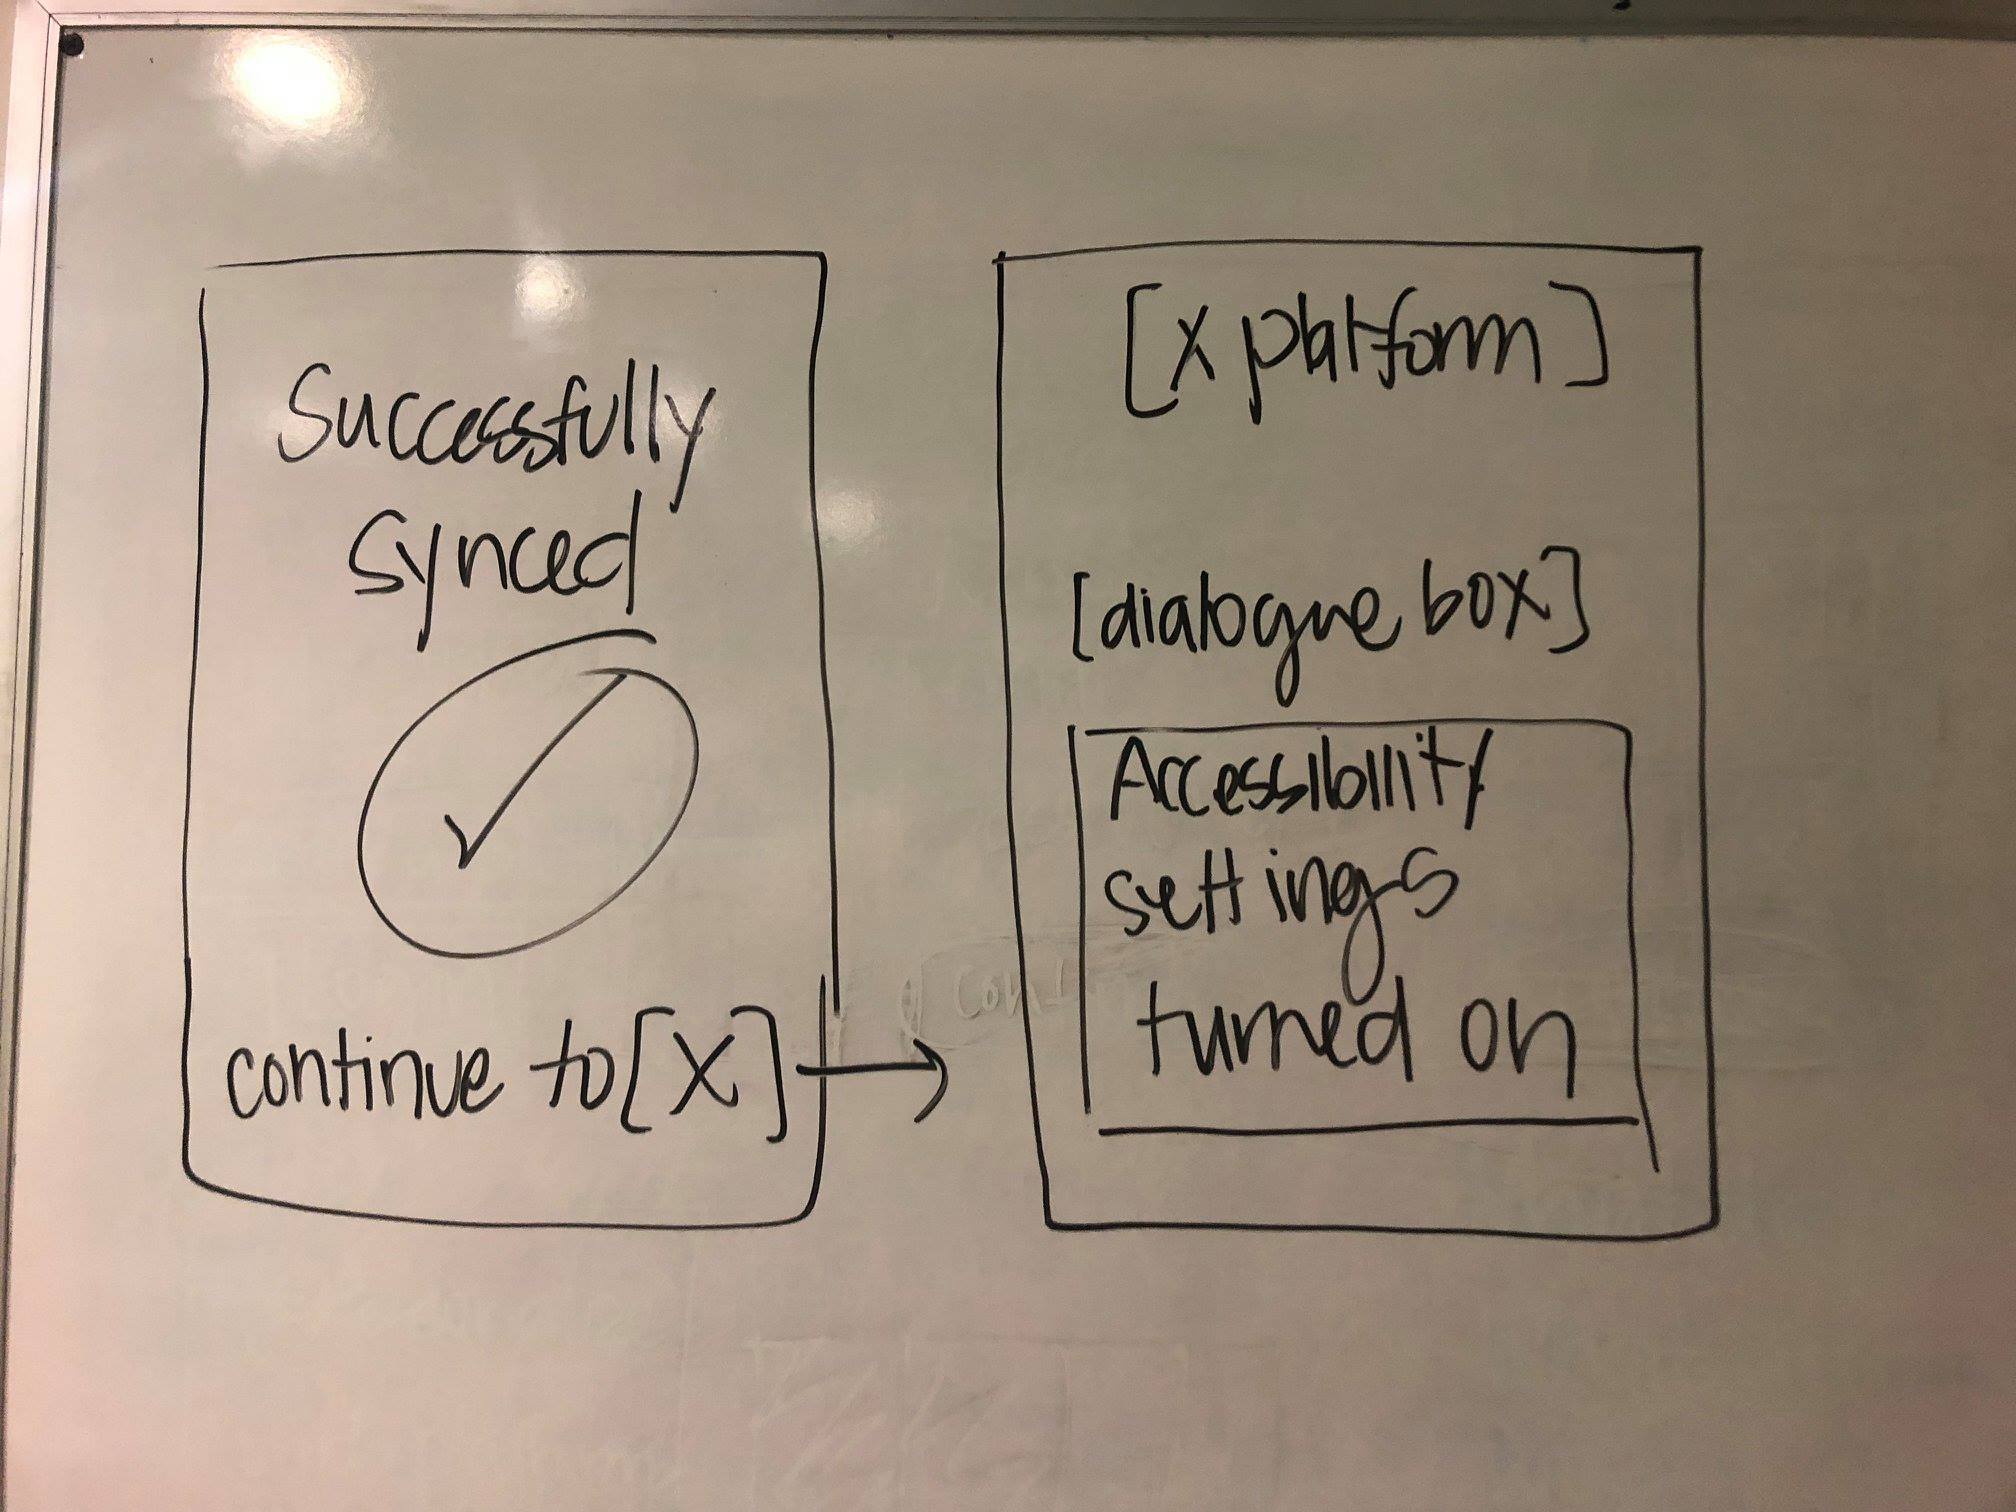 Successfully
synced
continue to [X]
[X platform]
[dialogue box]
Accessibility
settings
turned on
cont